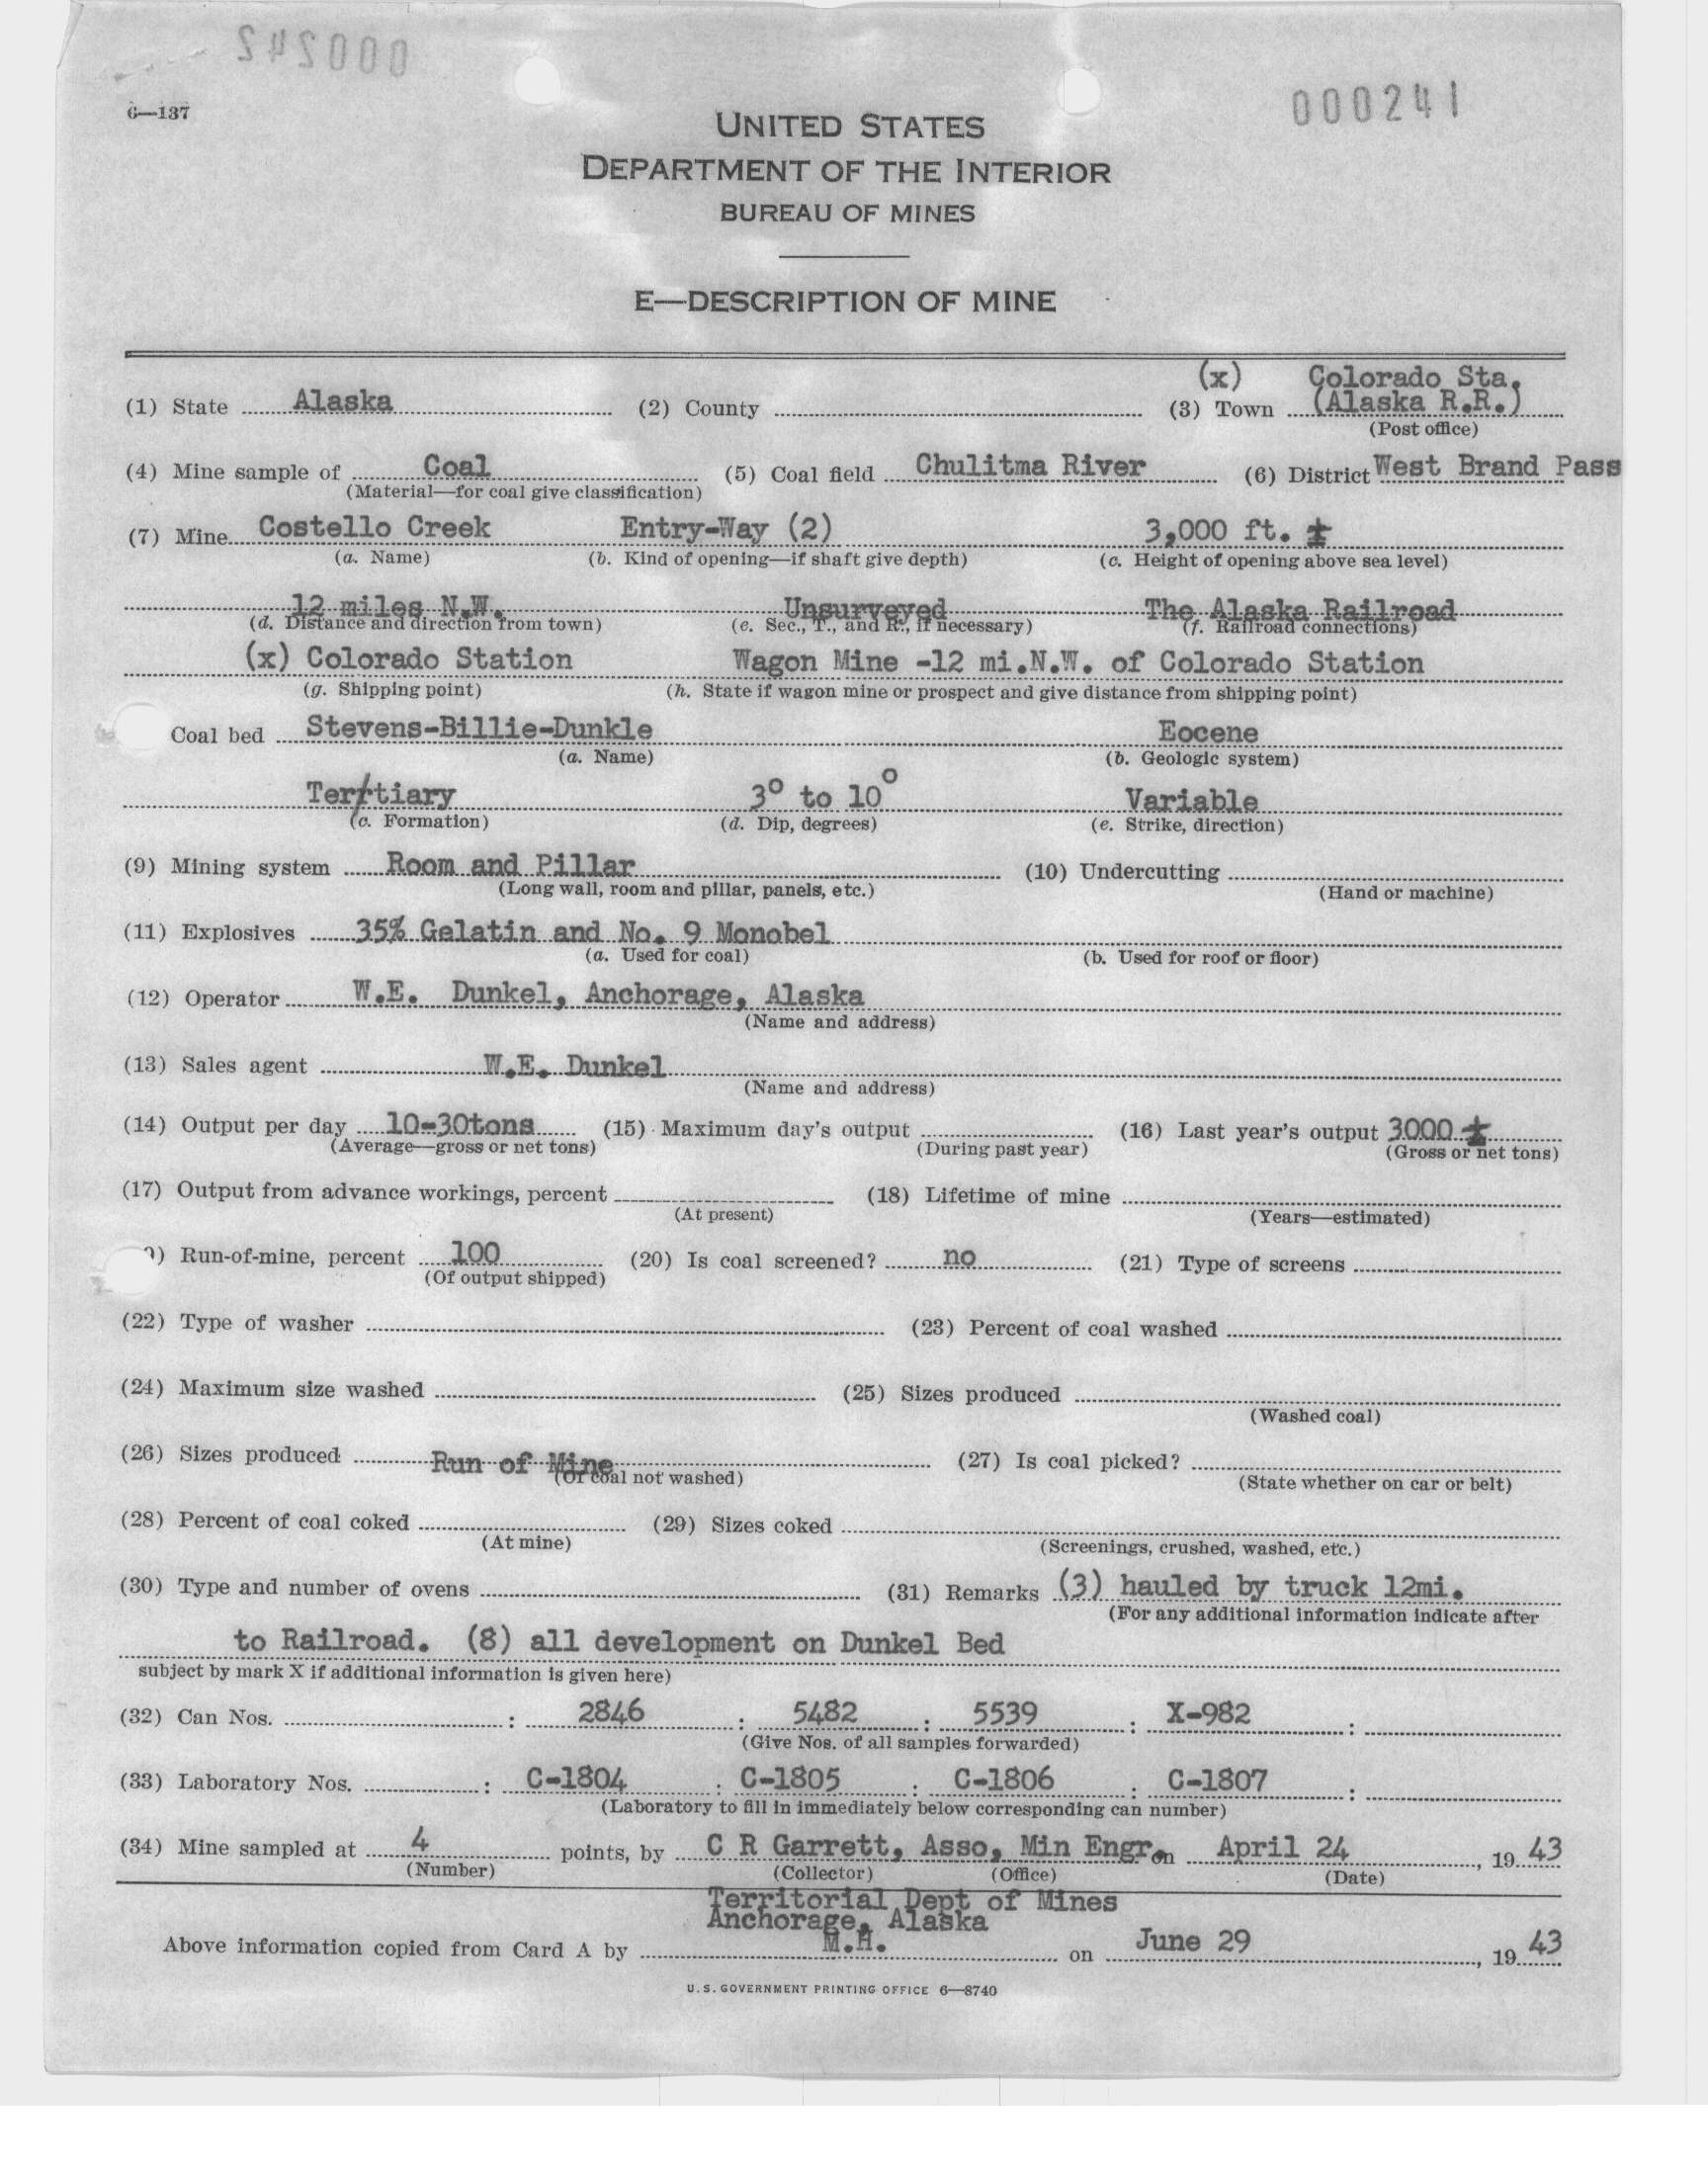 000242
000241
6—137
UNITED STATES
DEPARTMENT OF THE INTERIOR
BUREAU OF MINES
E—DESCRIPTION OF MINE
(x) Colorado Sta.
(1) State Alaska (2) County (3) Town (Alaska R.R.)
(Post office)
(4) Mine sample of Coal (5) Coal field Chulitma River (6) District West Brand Pass
(Material—for coal give classification)
(7) Mine Costello Creek Entry-Way (2) 3,000 ft. ±
(a. Name) (b. Kind of opening—if shaft give depth) (c. Height of opening above sea level)
12 miles N.W. Unsurveyed The Alaska Railroad
(d. Distance and direction from town) (e. Sec., T., and R., if necessary) (f. Railroad connections)
(x) Colorado Station Wagon Mine -12 mi.N.W. of Colorado Station
(g. Shipping point) (h. State if wagon mine or prospect and give distance from shipping point)
Coal bed Stevens-Billie-Dunkle Eocene
(a. Name) (b. Geologic system)
Tertiary 3° to 10° Variable
(c. Formation) (d. Dip, degrees) (e. Strike, direction)
(9) Mining system Room and Pillar (10) Undercutting
(Long wall, room and pillar, panels, etc.) (Hand or machine)
(11) Explosives 35% Gelatin and No. 9 Monobel
(a. Used for coal) (b. Used for roof or floor)
(12) Operator W.E. Dunkel, Anchorage, Alaska
(Name and address)
(13) Sales agent W.E. Dunkel
(Name and address)
(14) Output per day 10-30tons (15) Maximum day's output (16) Last year's output 3000 ±
(Average—gross or net tons) (During past year) (Gross or net tons)
(17) Output from advance workings, percent (18) Lifetime of mine
(At present) (Years—estimated)
) Run-of-mine, percent 100 (20) Is coal screened? no (21) Type of screens
(Of output shipped)
(22) Type of washer (23) Percent of coal washed
(24) Maximum size washed (25) Sizes produced
(Washed coal)
(26) Sizes produced Run of Mine (27) Is coal picked?
(Of coal not washed) (State whether on car or belt)
(28) Percent of coal coked (29) Sizes coked
(At mine) (Screenings, crushed, washed, etc.)
(30) Type and number of ovens (31) Remarks (3) hauled by truck 12mi.
(For any additional information indicate after
to Railroad. (8) all development on Dunkel Bed
subject by mark X if additional information is given here)
(32) Can Nos. : 2846 : 5482 : 5539 : X-982 :
(Give Nos. of all samples forwarded)
(33) Laboratory Nos. : C-1804 : C-1805 : C-1806 : C-1807 :
(Laboratory to fill in immediately below corresponding can number)
(34) Mine sampled at 4 points, by C R Garrett, Asso, Min Engr. on April 24, 19 43
(Number) (Collector) (Office) (Date)
Territorial Dept of Mines
Anchorage, Alaska
Above information copied from Card A by M.H. on June 29, 19 43
U.S. GOVERNMENT PRINTING OFFICE 6—8740